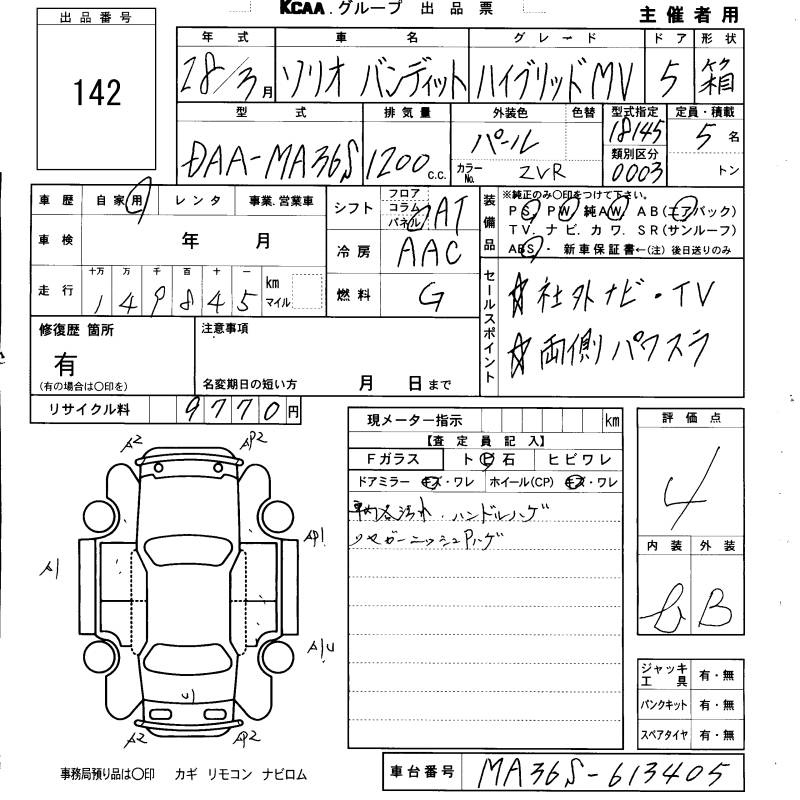 KCAA.グループ 出品票
主催者用
出品番号
142
年式 車名 グレード ドア 形状
28/3月 ソリオ バンディット ハイブリッドMV 5 箱
型式 排気量 外装色 色替 型式指定 定員・積載
DAA-MA36S 1200c.c. パール 18145 5名
カラーNo. ZVR 類別区分 0003 トン
車歴 自家用 レンタ 事業.営業車
車検 年 月
走行 十万 万 千 百 十 一 km マイル
149845
シフト フロア コラム パネル AT
冷房 AAC
燃料 G
装備品
※純正のみ○印をつけて下さい。
PS. PW. 純AW. AB(エアバック)
TV. ナビ. カワ. SR(サンルーフ)
ABS・新車保証書←(注) 後日送りのみ
セールスポイント
☆社外ナビ・TV
☆両側パワスラ
修復歴 箇所
有
(有の場合は○印を)
注意事項
名変期日の短い方 月 日まで
リサイクル料 9770円
現メーター指示 km
【査定員記入】
Fガラス ト ビ 石 ヒビワレ
ドアミラー キズ・ワレ ホイール(CP) キズ・ワレ
車内各汚れ.ハンドルハゲ
リヤガーニッシュPハゲ
評価点
4
内装 外装
B
A2 AP2
AP1
A1
A1U
U1
A2 AP2
ジャッキ工具 有・無
パンクキット 有・無
スペアタイヤ 有・無
事務局預り品は○印 カギ リモコン ナビロム
車台番号 MA36S-613405